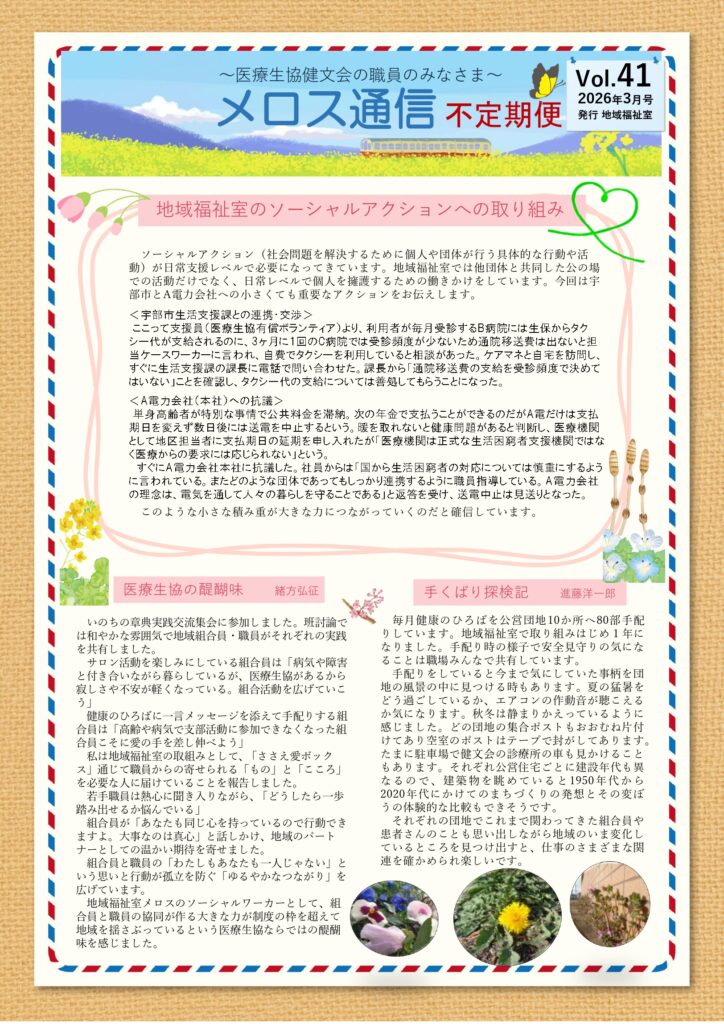 ～医療生協健文会の職員のみなさま～
メロス通信 不定期便
Vol.41
2026年3月号
発行 地域福祉室
地域福祉室のソーシャルアクションへの取り組み
ソーシャルアクション（社会問題を解決するために個人や団体が行う具体的な行動や活
動）が日常支援レベルで必要になってきています。地域福祉室では他団体と共同した公の場
での活動だけでなく、日常レベルで個人を擁護するための働きかけをしています。今回は宇
部市とA電力会社への小さくても重要なアクションをお伝えします。
＜宇部市生活支援課との連携・交渉＞
ここって支援員（医療生協有償ボランティア）より、利用者が毎月受診するB病院には生保からタク
シー代が支給されるのに、3ヶ月に1回のC病院では受診頻度が少ないため通院移送費は出ないと担
当ケースワーカーに言われ、自費でタクシーを利用していると相談があった。ケアマネと自宅を訪問し、
すぐに生活支援課の課長に電話で問い合わせた。課長から「通院移送費の支給を受診頻度で決めて
はいない」ことを確認し、タクシー代の支給については善処してもらうことになった。
＜A電力会社（本社）への抗議＞
単身高齢者が特別な事情で公共料金を滞納。次の年金で支払うことができるのだがA電だけは支払
期日を変えず数日後には送電を中止するという。暖を取れないと健康問題があると判断し、医療機関
として地区担当者に支払期日の延期を申し入れたが「医療機関は正式な生活困窮者支援機関ではな
く医療からの要求には応じられない」という。
すぐにA電力会社本社に抗議した。社員からは「国から生活困窮者の対応については慎重にするよう
に言われている。またどのような団体であってもしっかり連携するように職員指導している。A電力会社
の理念は、電気を通して人々の暮らしを守ることである」と返答を受け、送電中止は見送りとなった。
このような小さな積み重が大きな力につながっていくのだと確信しています。
医療生協の醍醐味 緒方弘征
いのちの章典実践交流集会に参加しました。班討論で
は和やかな雰囲気で地域組合員・職員がそれぞれの実践
を共有しました。
サロン活動を楽しみにしている組合員は「病気や障害
と付き合いながら暮らしているが、医療生協があるから
寂しさや不安が軽くなっている。組合活動を広げていこ
う」
健康のひろばに一言メッセージを添えて手配りする組
合員は「高齢や病気で支部活動に参加できなくなった組
合員こそに愛の手を差し伸べよう」
私は地域福祉室の取組みとして、「ささえ愛ボック
ス」通じて職員からの寄せられる「もの」と「こころ」
を必要な人に届けていることを報告しました。
若手職員は熱心に聞き入りながら、「どうしたら一歩
踏み出せるか悩んでいる」
組合員が「あなたも同じ心を持っているので行動でき
ますよ。大事なのは真心」と話しかけ、地域のパート
ナーとしての温かい期待を寄せました。
組合員と職員の「わたしもあなたも一人じゃない」と
いう思いと行動が孤立を防ぐ「ゆるやかなつながり」を
広げています。
地域福祉室メロスのソーシャルワーカーとして、組
合員と職員の協同が作る大きな力が制度の枠を超えて
地域を揺さぶっているという医療生協ならではの醍醐
味を感じました。
手くばり探検記 進藤洋一郎
毎月健康のひろばを公営団地10か所へ80部手配
りしています。地域福祉室で取り組みはじめ１年に
なりました。手配り時の様子で安全見守りの気にな
ることは職場みんなで共有しています。
手配りをしていると今まで気にしていた事柄を団
地の風景の中に見つける時もあります。夏の猛暑を
どう過ごしているか、エアコンの作動音が聴こえる
か気になります。秋冬は静まりかえっているように
感じました。どの団地の集合ポストもおおむね片付
けてあり空室のポストはテープで封がしてあります。
たまに駐車場で健文会の診療所の車も見かけること
もあります。それぞれ公営住宅ごとに建設年代も異
なるので、建築物を眺めていると1950年代から
2020年代にかけてのまちづくりの発想とその変ぼ
うの体験的な比較もできそうです。
それぞれの団地でこれまで関わってきた組合員や
患者さんのことも思い出しながら地域のいま変化し
ているところを見つけ出すと、仕事のさまざまな関
連を確かめられ楽しいです。